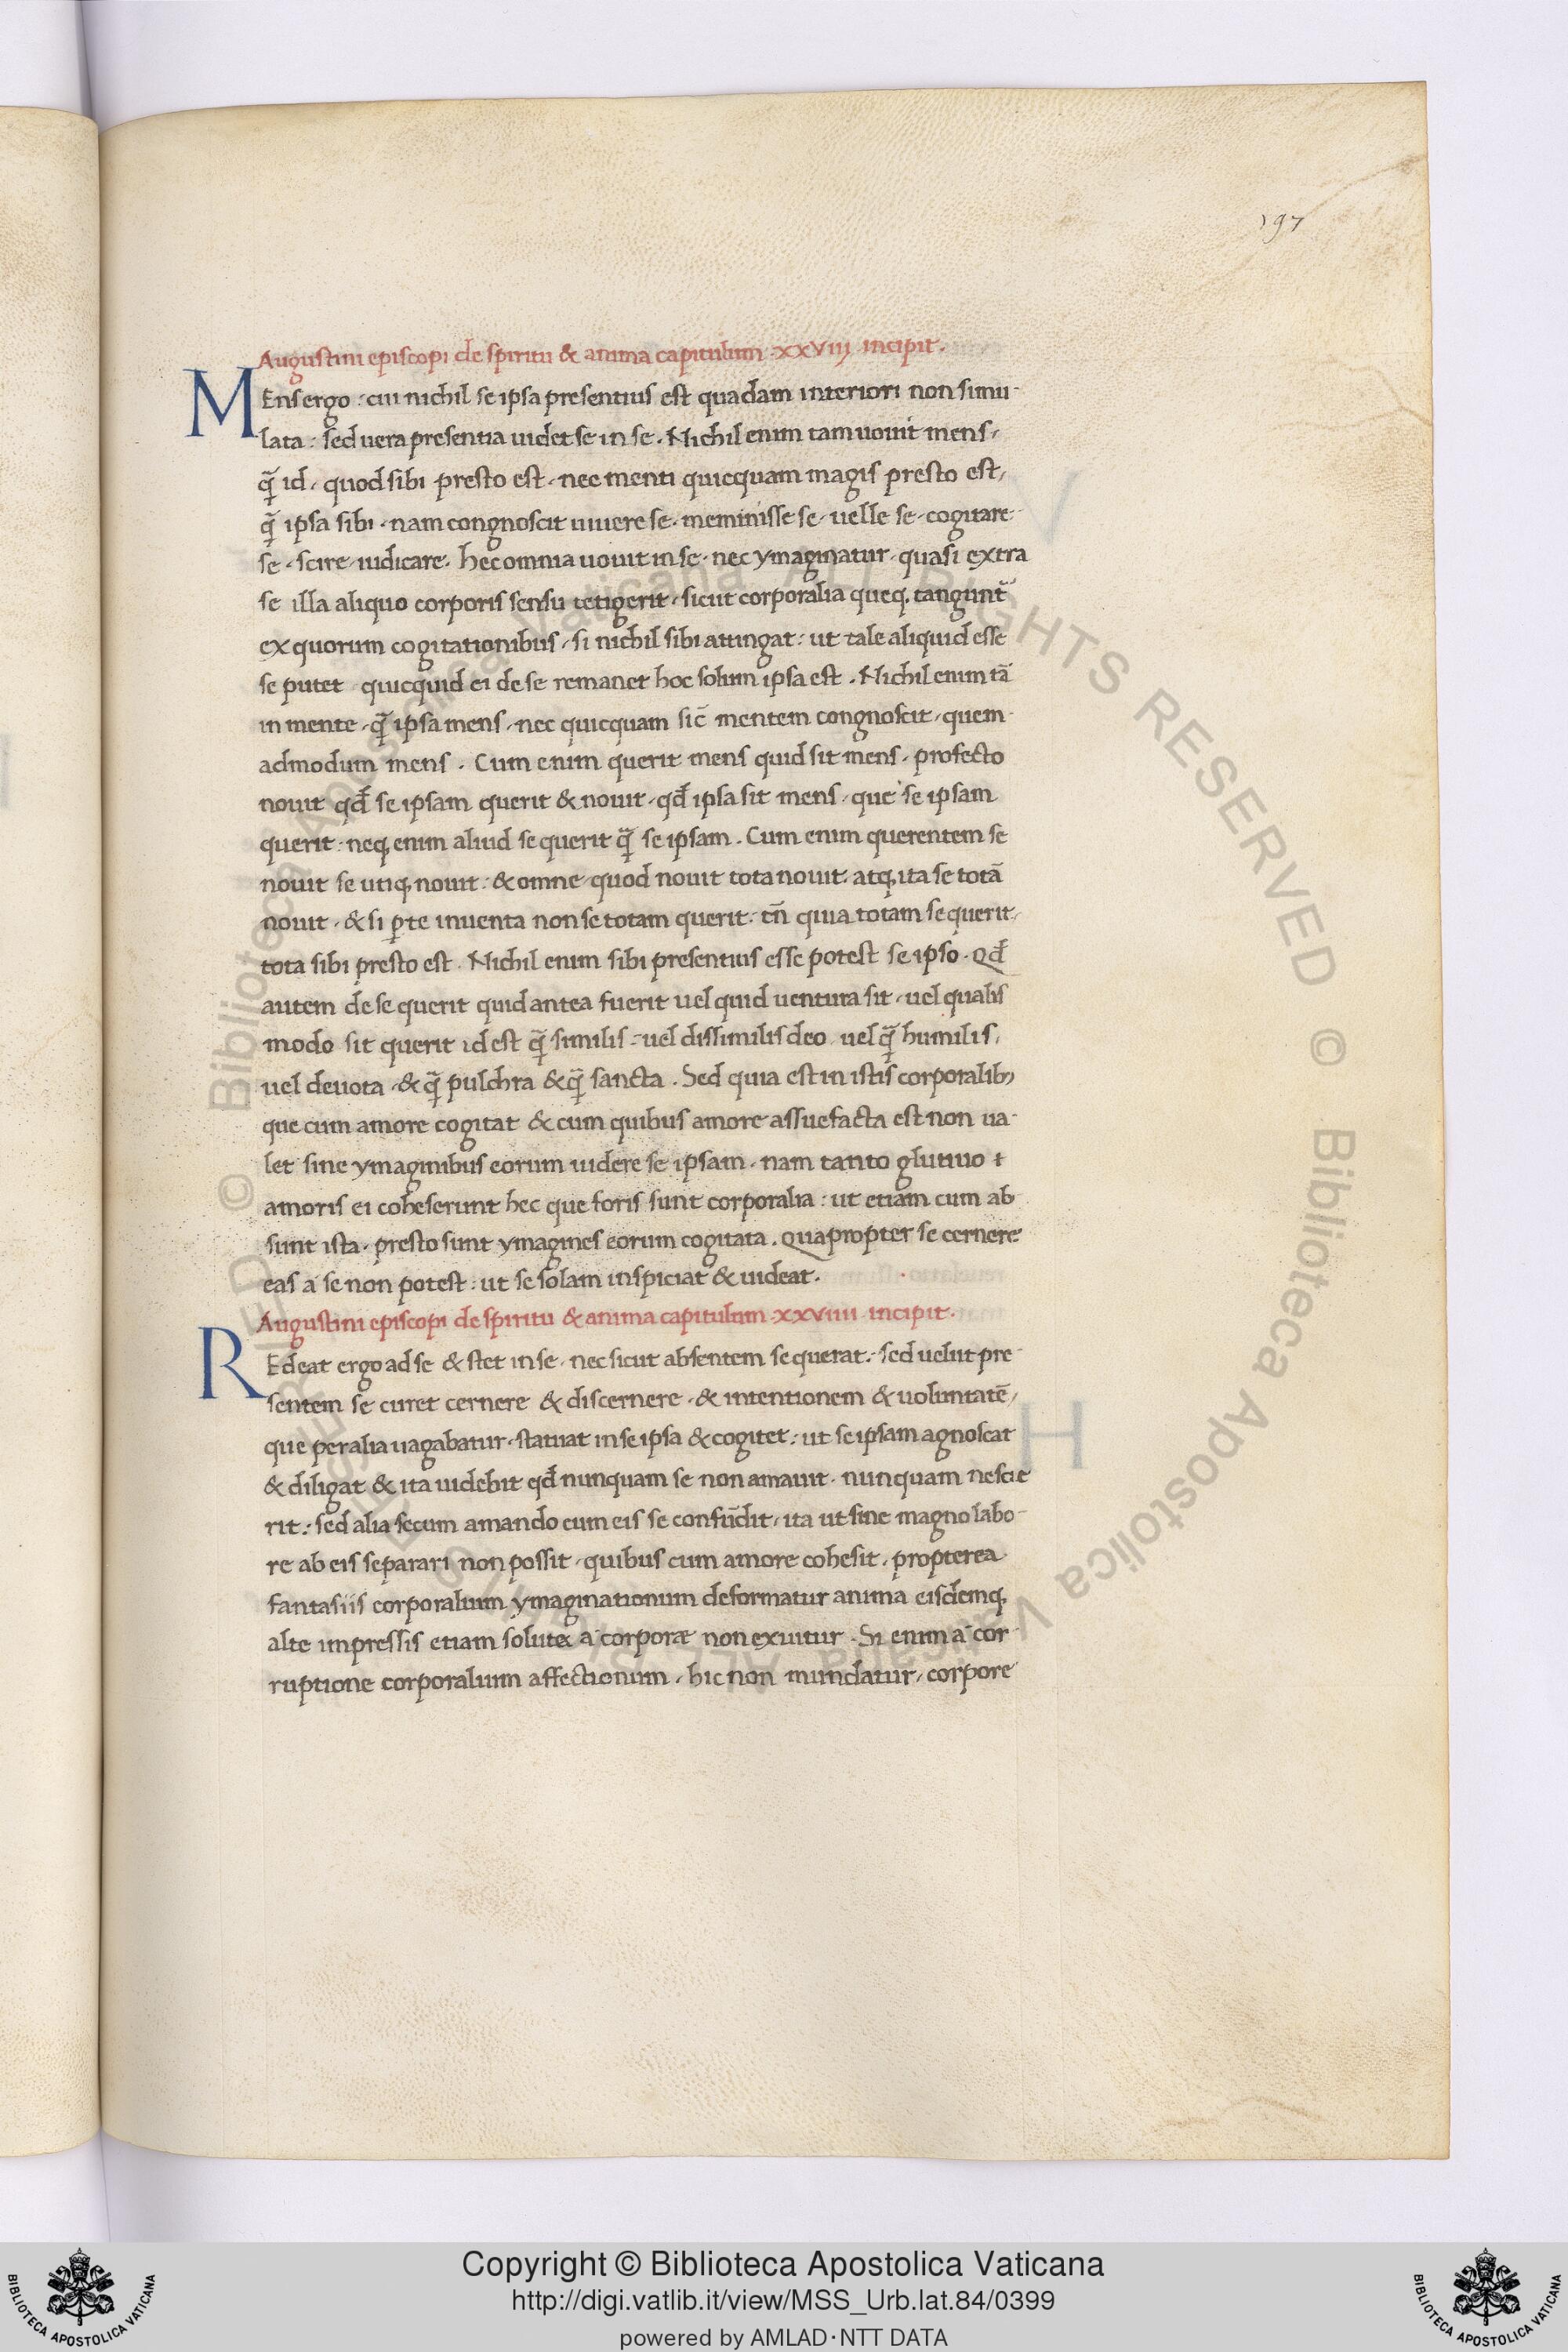 197
Augustini episcopi de spiritu & anima capitulum ·xxviij· incipit·
MEns ergo : cui nichil se ipsa presentius est quadam interiori non simu-
lata : sed uera presentia uidet se in se . Nichil enim tam nouit mens,
q̃ id, quod sibi presto est, nec menti quicquam magis presto est,
q̃ ipsa sibi · nam congnoscit uiuere se · meminisse se, uelle se, cogitare
se, scire, iudicare. hec omnia nouit in se, nec ymaginatur, quasi extra
se illa aliquo corporis sensu tetigerit, sicut corporalia queq; tangunt̃
ex quorum cogitationibus, si nichil sibi attingat : ut tale aliquid esse
se putet quicquid ei de se remanet hoc solum ipsa est . Nichil enim tã
in mente, q̃ ipsa mens, nec quicquam sic̃ mentem congnoscit, quem-
admodum mens . Cum enim querit mens quid sit mens, profecto
nouit qđ se ipsam querit & nouit, qđ ipsa sit mens, que se ipsam
querit : neq; enim aliud se querit q̃ se ipsam . Cum enim querentem se
nouit se utiq; nouit : & omne quod nouit tota nouit · atq; ita se totã
nouit · & si ꝑte inuenta non se totam querit : tñ quia totam se querit,
tota sibi presto est · Nichil enim sibi presentius esse potest se ipso · Qđ
autem de se querit quid antea fuerit uel quid uentura sit, uel qualis
modo sit querit id est q̃ similis uel dissimilis deo uel q̃ humilis,
uel deuota, & q̃ pulchra & q̃ sancta . Sed quia est in istis corporalib;
que cum amore cogitat & cum quibus amore assuefacta est non ua-
let sine ymaginibus eorum uidere se ipsam, nam tanto glutino
amoris ei coheserunt hec que foris sunt corporalia : ut etiam cum ab-
sunt ista, presto sunt ymagines eorum cogitata . Quapropter se cernere
eas a se non potest : ut se solam inspiciat & uideat.
Augustini episcopi de spiritu & anima capitulum ·xxviiii· incipit·
REdeat ergo ad se & stet in se, nec sicut absentem se querat : sed uelut pre-
sentem se curet cernere & discernere, & intentionem & uoluntatẽ,
que per alia uagabatur, statuat in se ipsa & cogitet : ut se ipsam agnoscat
& diligat & ita uidebit qđ nunquam se non amauit, nunquam nescie
rit : sed alia secum amando cum eis se confũdit, ita ut sine magno labo-
re ab eis separari non possit, quibus cum amore cohesit, propterea
fantasiis corporalium ymaginationum deformatur anima eisdemq;
alte impressis etiam soluta a corpore non exuitur . Si enim a cor-
ruptione corporalium affectionum, hic non mundatur, corpore
© Biblioteca Apostolica Vaticana ALL RIGHTS RESERVED © Biblioteca Apostolica Vaticana ALL RIGHTS RESERVED
BIBLIOTECA APOSTOLICA VATICANA
Copyright © Biblioteca Apostolica Vaticana
http://digi.vatlib.it/view/MSS_Urb.lat.84/0399
powered by AMLAD·NTT DATA
BIBLIOTECA APOSTOLICA VATICANA